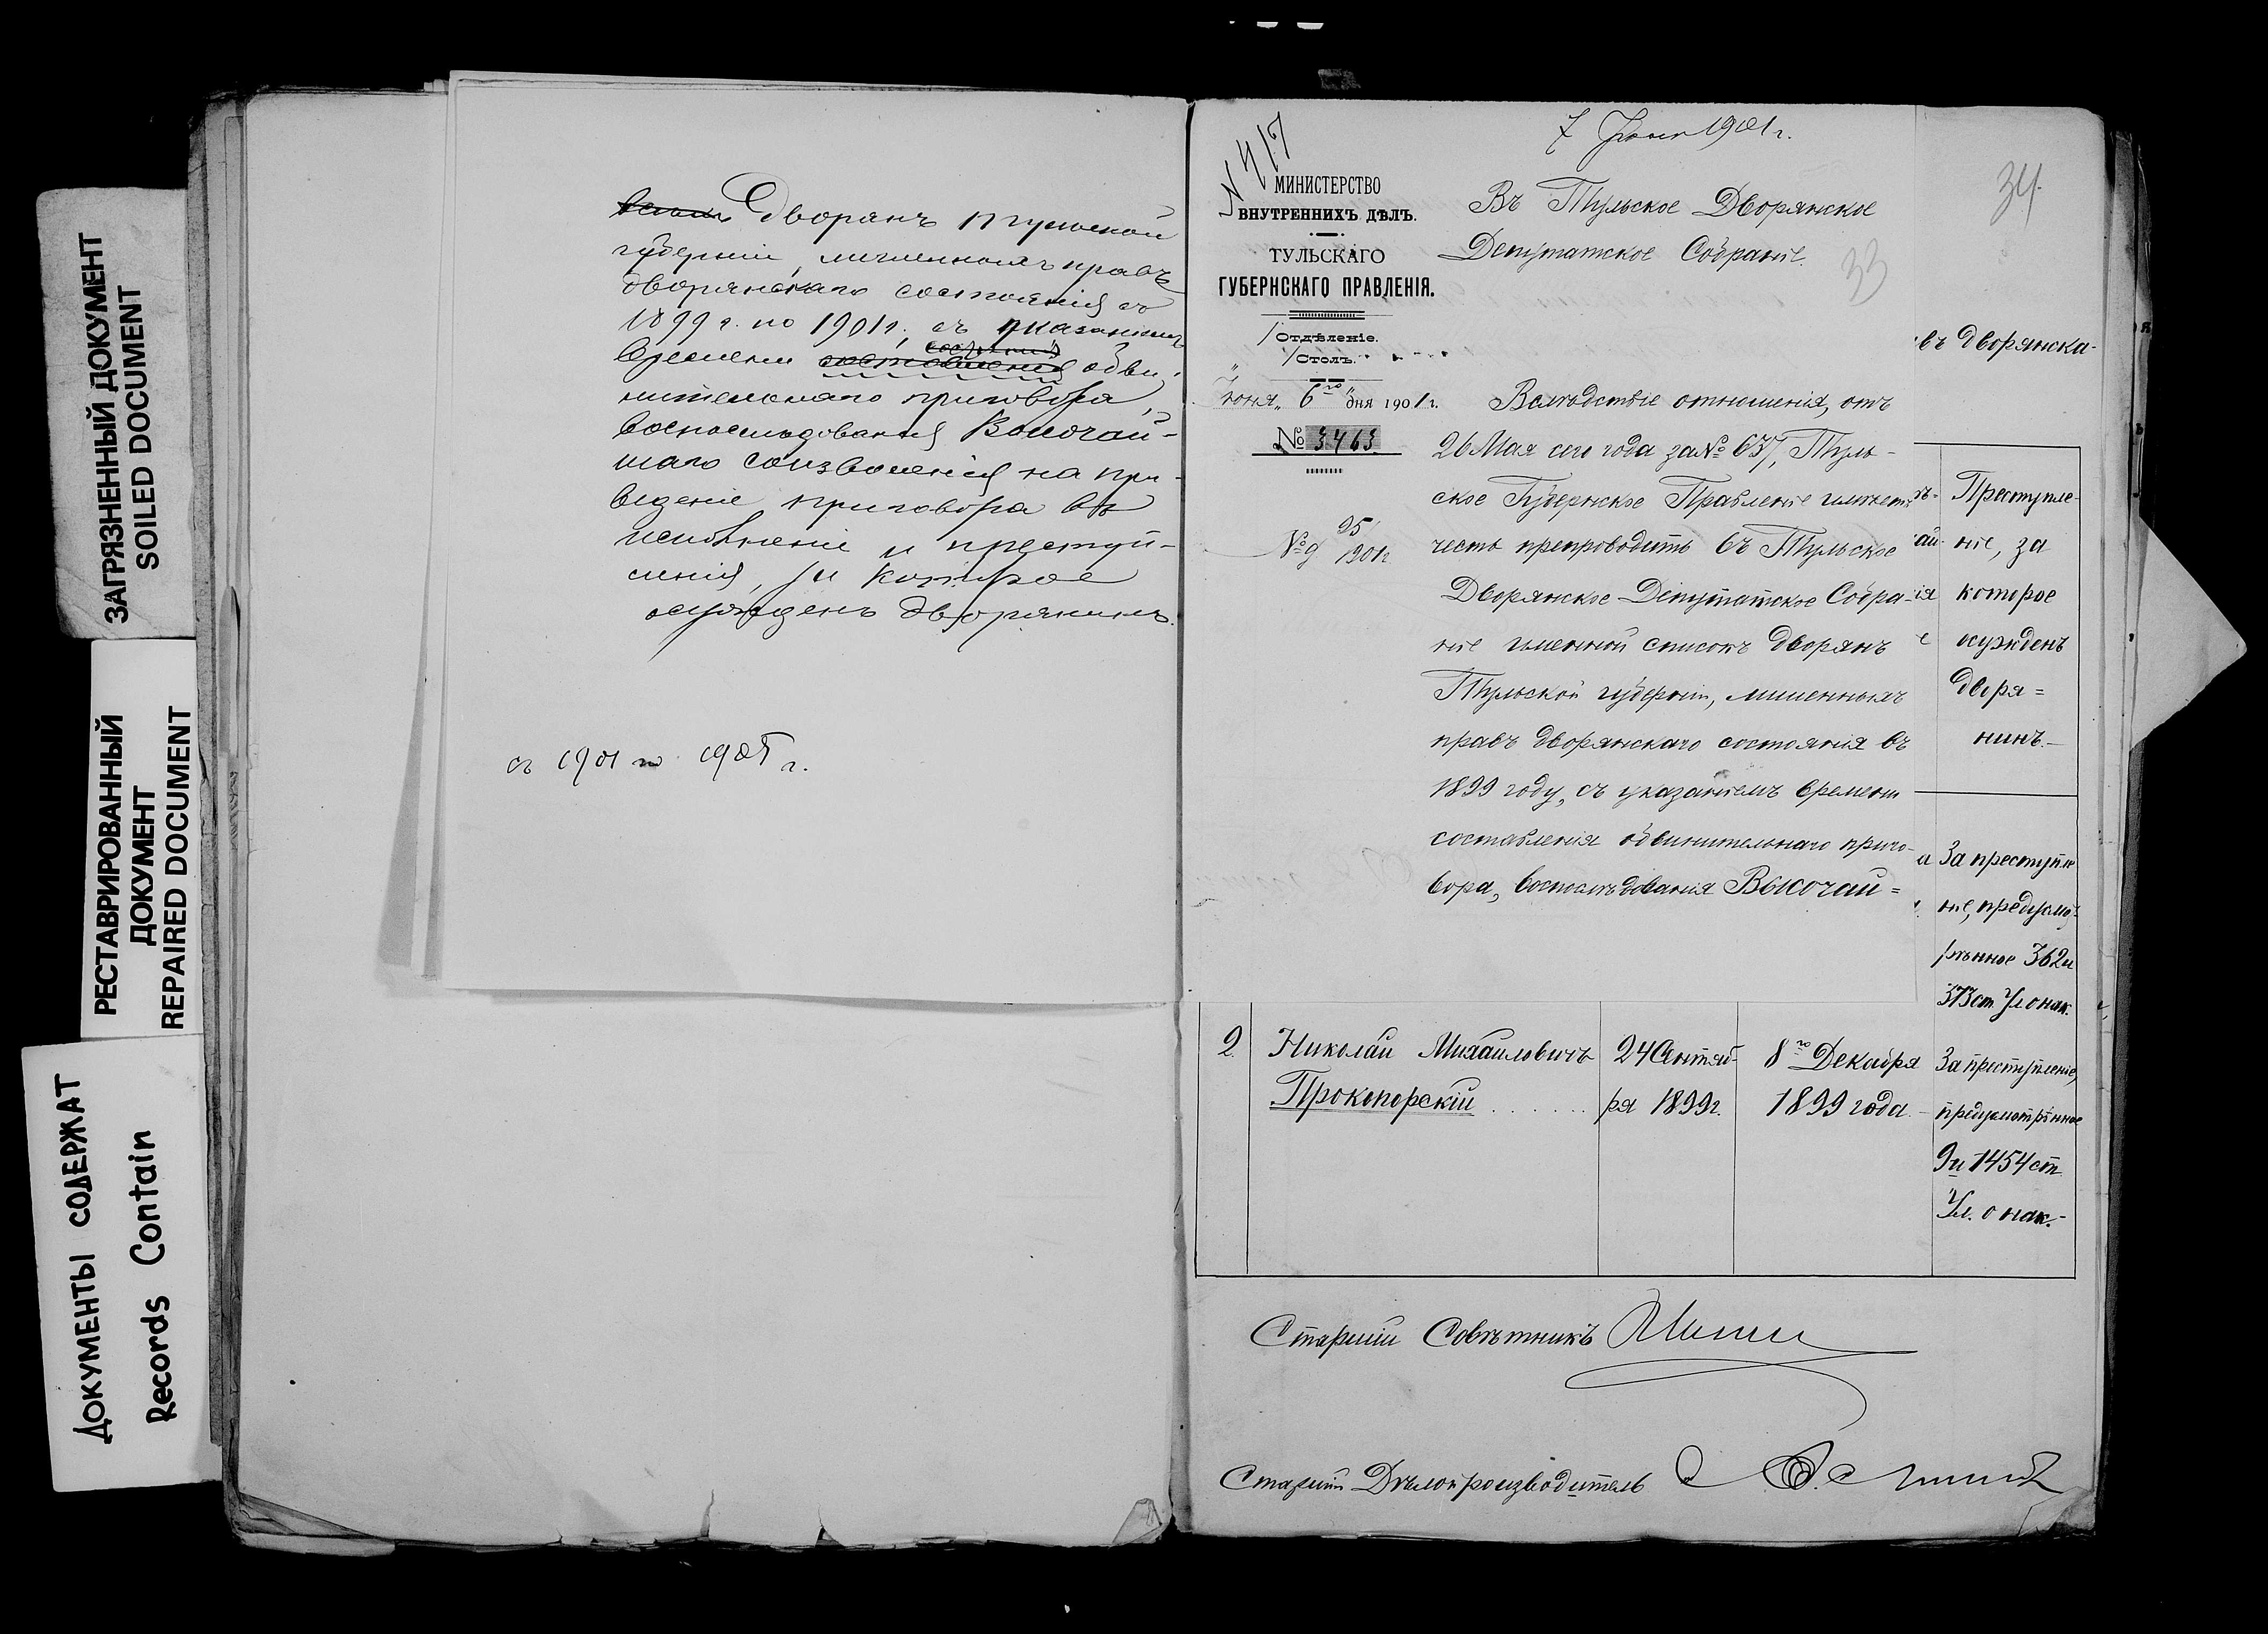 ЗАГРЯЗНЕННЫЙ ДОКУМЕНТ
SOILED DOCUMENT
РЕСТАВРИРОВАННЫЙ
ДОКУМЕНТ
REPAIRED DOCUMENT
ДОКУМЕНТЫ СОДЕРЖАТ
Records Contain
Дворянъ Тульской
губерніи, лишенныхъ правъ
дворянскаго состоянія съ
1899 г. по 1901 г. съ указаніемъ
времени состоянія обви-
нительнаго приговора,
воспослѣдованія Высочай-
шаго соизволенія на при-
веденіе приговора въ
исполненіе и преступ-
ленія, за которое
осужденъ дворянинъ.
съ 1901 по 1905 г.
7 Іюня 1901 г.
N 417
МИНИСТЕРСТВО
ВНУТРЕННИХЪ ДѢЛЪ.
ТУЛЬСКАГО
ГУБЕРНСКАГО ПРАВЛЕНІЯ.
Отдѣленіе.
Столъ.
Іюня 6го дня 1901 г.
№ 3463
№ 9 95/1901 г.
Въ Тульское Дворянское
Депутатское Собраніе.
33
34
Вслѣдствіе отношенія, отъ
26 Мая сего года за № 637, Туль-
ское Губернское Правленіе имѣетъ
честь препроводить въ Тульское
Дворянское Депутатское Собра-
ніе именной списокъ дворянъ
Тульской губерніи, лишенныхъ
правъ дворянскаго состоянія въ
1899 году, съ указаніемъ времени
составленія обвинительнаго приго-
вора, воспослѣдованія Высочай=
въ дворянска-
Преступле-
ніе, за
которое
осужденъ
дворя=
нинъ.
За преступле
ніе, предусмо-
трѣнное 362 и
373 ст. Ул. о нак.
2. Николай Михайловичъ Прокопорскій 24 Сентяб-ря 1899 г. 8го Декабря 1899 года.
За преступленіе,
предусмотрѣнное
9 и 1454 ст.
Ул. о нак.-
Старшій Совѣтникъ
Старшій Дѣлопроизводитель